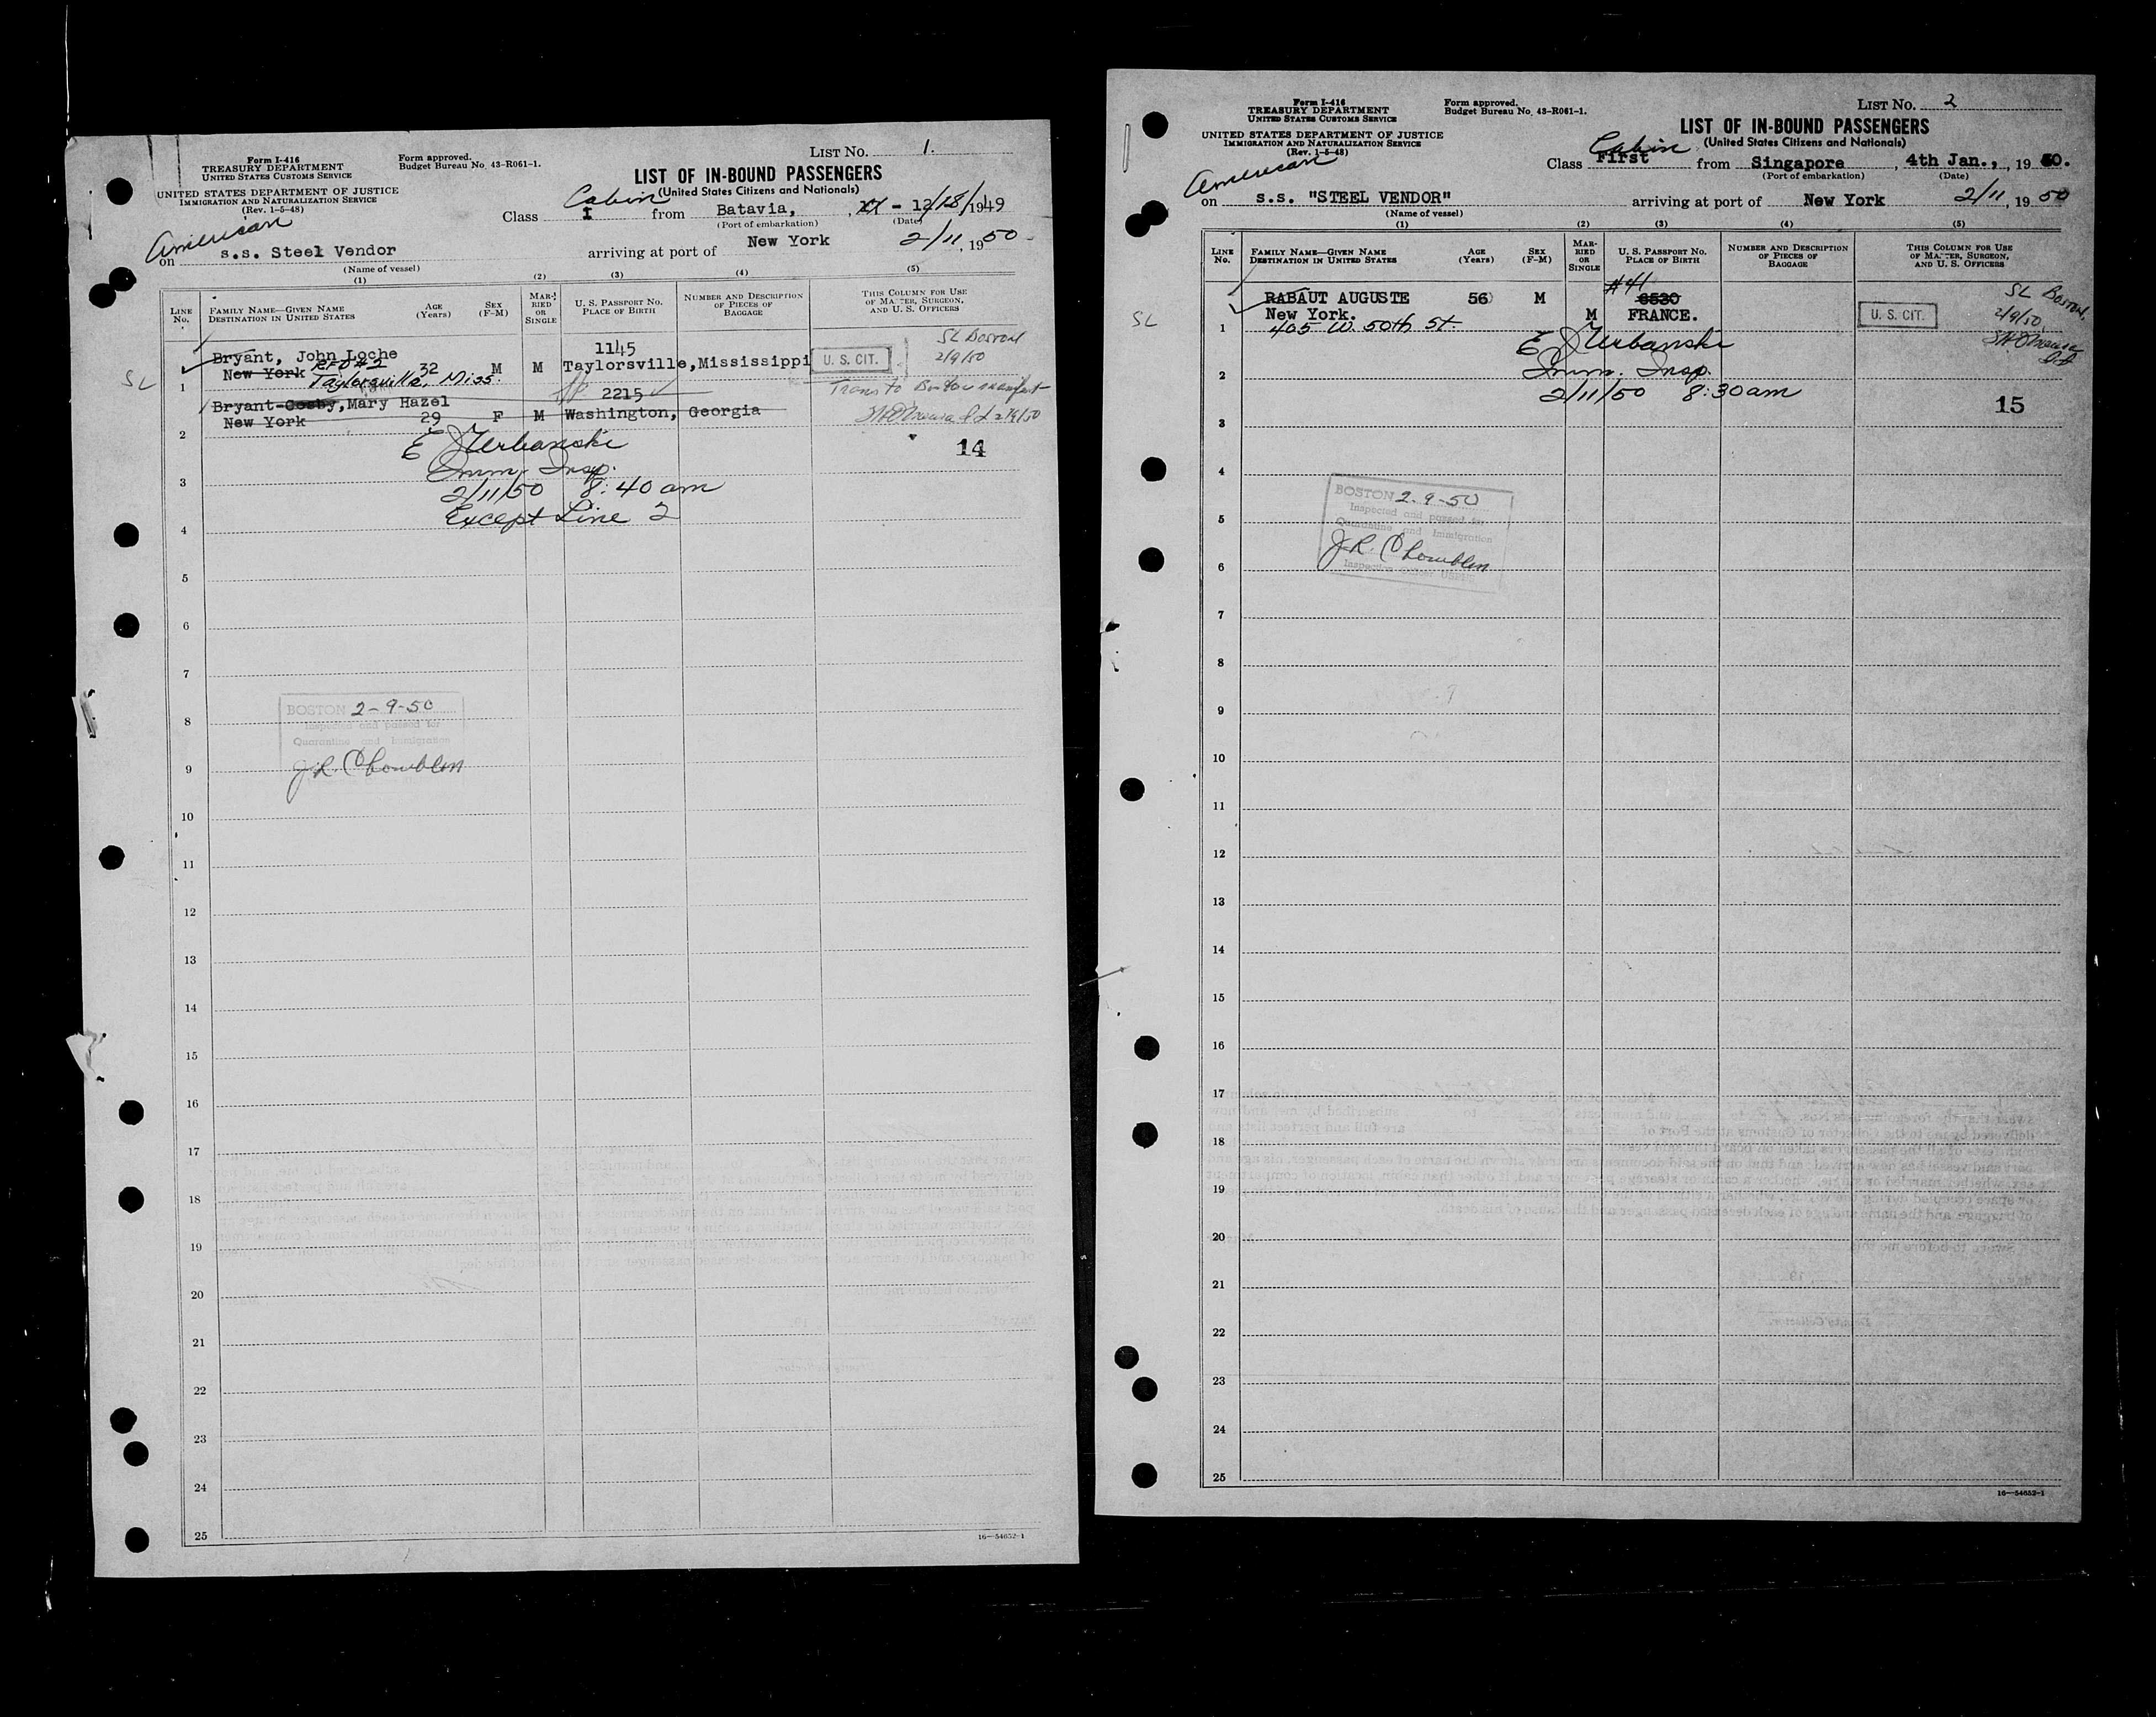 Form I-416
TREASURY DEPARTMENT
UNITED STATES CUSTOMS SERVICE
UNITED STATES DEPARTMENT OF JUSTICE
IMMIGRATION AND NATURALIZATION SERVICE
(Rev. 1-5-48)
Form approved.
Budget Bureau No. 43-R061-1.
LIST No. 1.
LIST OF IN-BOUND PASSENGERS
(United States Citizens and Nationals)
Cabin
Class I from Batavia, - 12/18/1949
(Port of embarkation) (Date)
American
on s.s. Steel Vendor arriving at port of New York 2/11, 1950
(Name of vessel)
(1) (2) (3) (4) (5)
LINE No. FAMILY NAME—GIVEN NAME DESTINATION IN UNITED STATES AGE (Years) SEX (F-M) MARRIED OR SINGLE U. S. PASSPORT No. PLACE OF BIRTH NUMBER AND DESCRIPTION OF PIECES OF BAGGAGE THIS COLUMN FOR USE OF MASTER, SURGEON, AND U. S. OFFICERS
SL Boston
2/9/50
Bryant, John Loche 1145
SL 1 New York RFD #2 32 M M Taylorsville, Mississippi U. S. CIT.
Taylorsville, Miss.
Trans to
Bryant-Cosby, Mary Hazel 2215
2 New York 29 F M Washington, Georgia 2/9/50
E J Urbanski
Imm. Insp.
2/11/50 8:40 am
Except Line 2
14
3
4
5
6
7
8
BOSTON 2-9-50
Inspected and passed for
Quarantine and Immigration
9
10
11
12
13
14
15
16
17
18
19
20
21
22
23
24
25
16—54652-1
Form I-416
TREASURY DEPARTMENT
UNITED STATES CUSTOMS SERVICE
UNITED STATES DEPARTMENT OF JUSTICE
IMMIGRATION AND NATURALIZATION SERVICE
(Rev. 1-5-48)
Form approved.
Budget Bureau No. 43-R061-1.
LIST No. 2
LIST OF IN-BOUND PASSENGERS
(United States Citizens and Nationals)
Cabin
Class First from Singapore, 4th Jan., 1950.
(Port of embarkation) (Date)
American
on s.s. "STEEL VENDOR" arriving at port of New York 2/11, 1950
(Name of vessel)
(1) (2) (3) (4) (5)
LINE No. FAMILY NAME—GIVEN NAME DESTINATION IN UNITED STATES AGE (Years) SEX (F-M) MARRIED OR SINGLE U. S. PASSPORT No. PLACE OF BIRTH NUMBER AND DESCRIPTION OF PIECES OF BAGGAGE THIS COLUMN FOR USE OF MASTER, SURGEON, AND U. S. OFFICERS
#41
SL Boston
RABAUT AUGUSTE 56 M 6530
SL 1 New York. M FRANCE. U. S. CIT. 2/9/50
405 W. 50th St.
E J Urbanski
Imm. Insp.
2/11/50 8:30am
15
2
3
4
BOSTON 2-9-50
Inspected and passed for
Quarantine and Immigration
5
6
7
8
9
10
11
12
13
14
15
16
17
18
19
20
21
22
23
24
25
16—54652-1